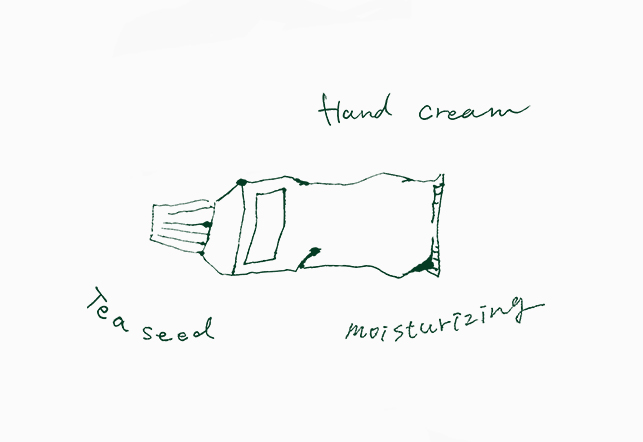 Hand cream
Tea seed
moisturizing